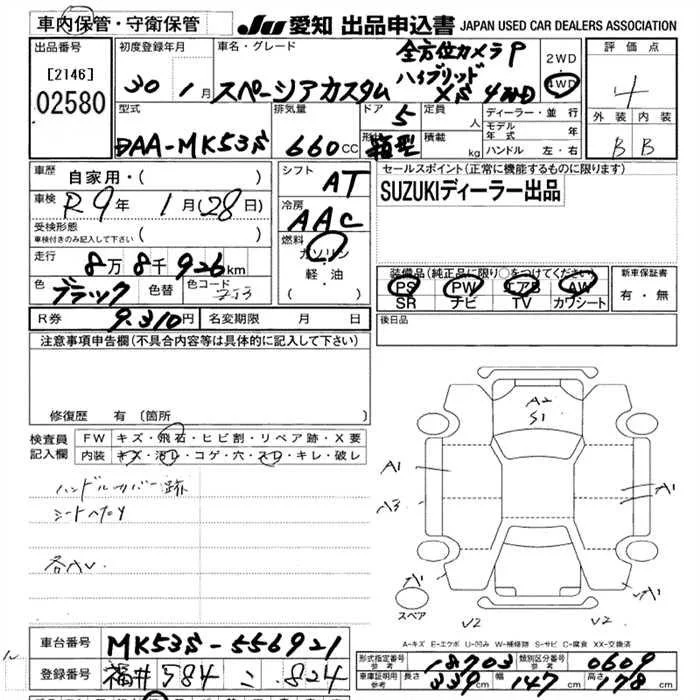 車内保管・守衛保管 JU 愛知 出品申込書 JAPAN USED CAR DEALERS ASSOCIATION
出品番号 [2146] 02580
初度登録年月 30 1月
車名・グレード スペーシアカスタム 全方位カメラP ハイブリッド XS 4WD
2WD 4WD
評価点 4
外装 内装 B B
型式 DAA-MK53S
排気量 660cc
ドア 5 形状 箱型
定員 人 積載 kg
ディーラー・並行
モデル年式 年
ハンドル 左・右
車歴 自家用・( )
車検 R9年 1月(28日)
受検形態 車検付きのみ記入して下さい ( )
走行 8万8千926km
色 ブラック 色替 色コード ZJ3
シフト AT
冷房 AAC
燃料 ガソリン・軽油 ( )
セールスポイント(正常に機能するものに限ります)
SUZUKIディーラー出品
装備品(純正品に限り○をつけてください)
PS PW エアB AW
SR ナビ TV カワシート
新車保証書 有・無
R券 9.310円 名変期限 月 日
後日品
注意事項申告欄(不具合内容等は具体的に記入して下さい)
修復歴 有 〔箇所 〕
検査員記入欄
FW キズ・飛石・ヒビ割・リペア跡・X要
内装 キズ・汚レ・コゲ・穴・スレ・キレ・破レ
ハンドルカバー跡
シートヘタリ
各AU
A2
S1
A1
A3
A1
A1
A1
A1
スペア
V2 V2
A-キズ E-エクボ U-凹み W-補修跡 S-サビ C-腐食 XX-交換済
車台番号 MK53S-556921
登録番号 福井 584 こ 824
形式指定番号 参考 18703 類別区分番号 参考 0609
車庫証明用 参考 長さ 339cm 幅 147cm 高さ 178cm